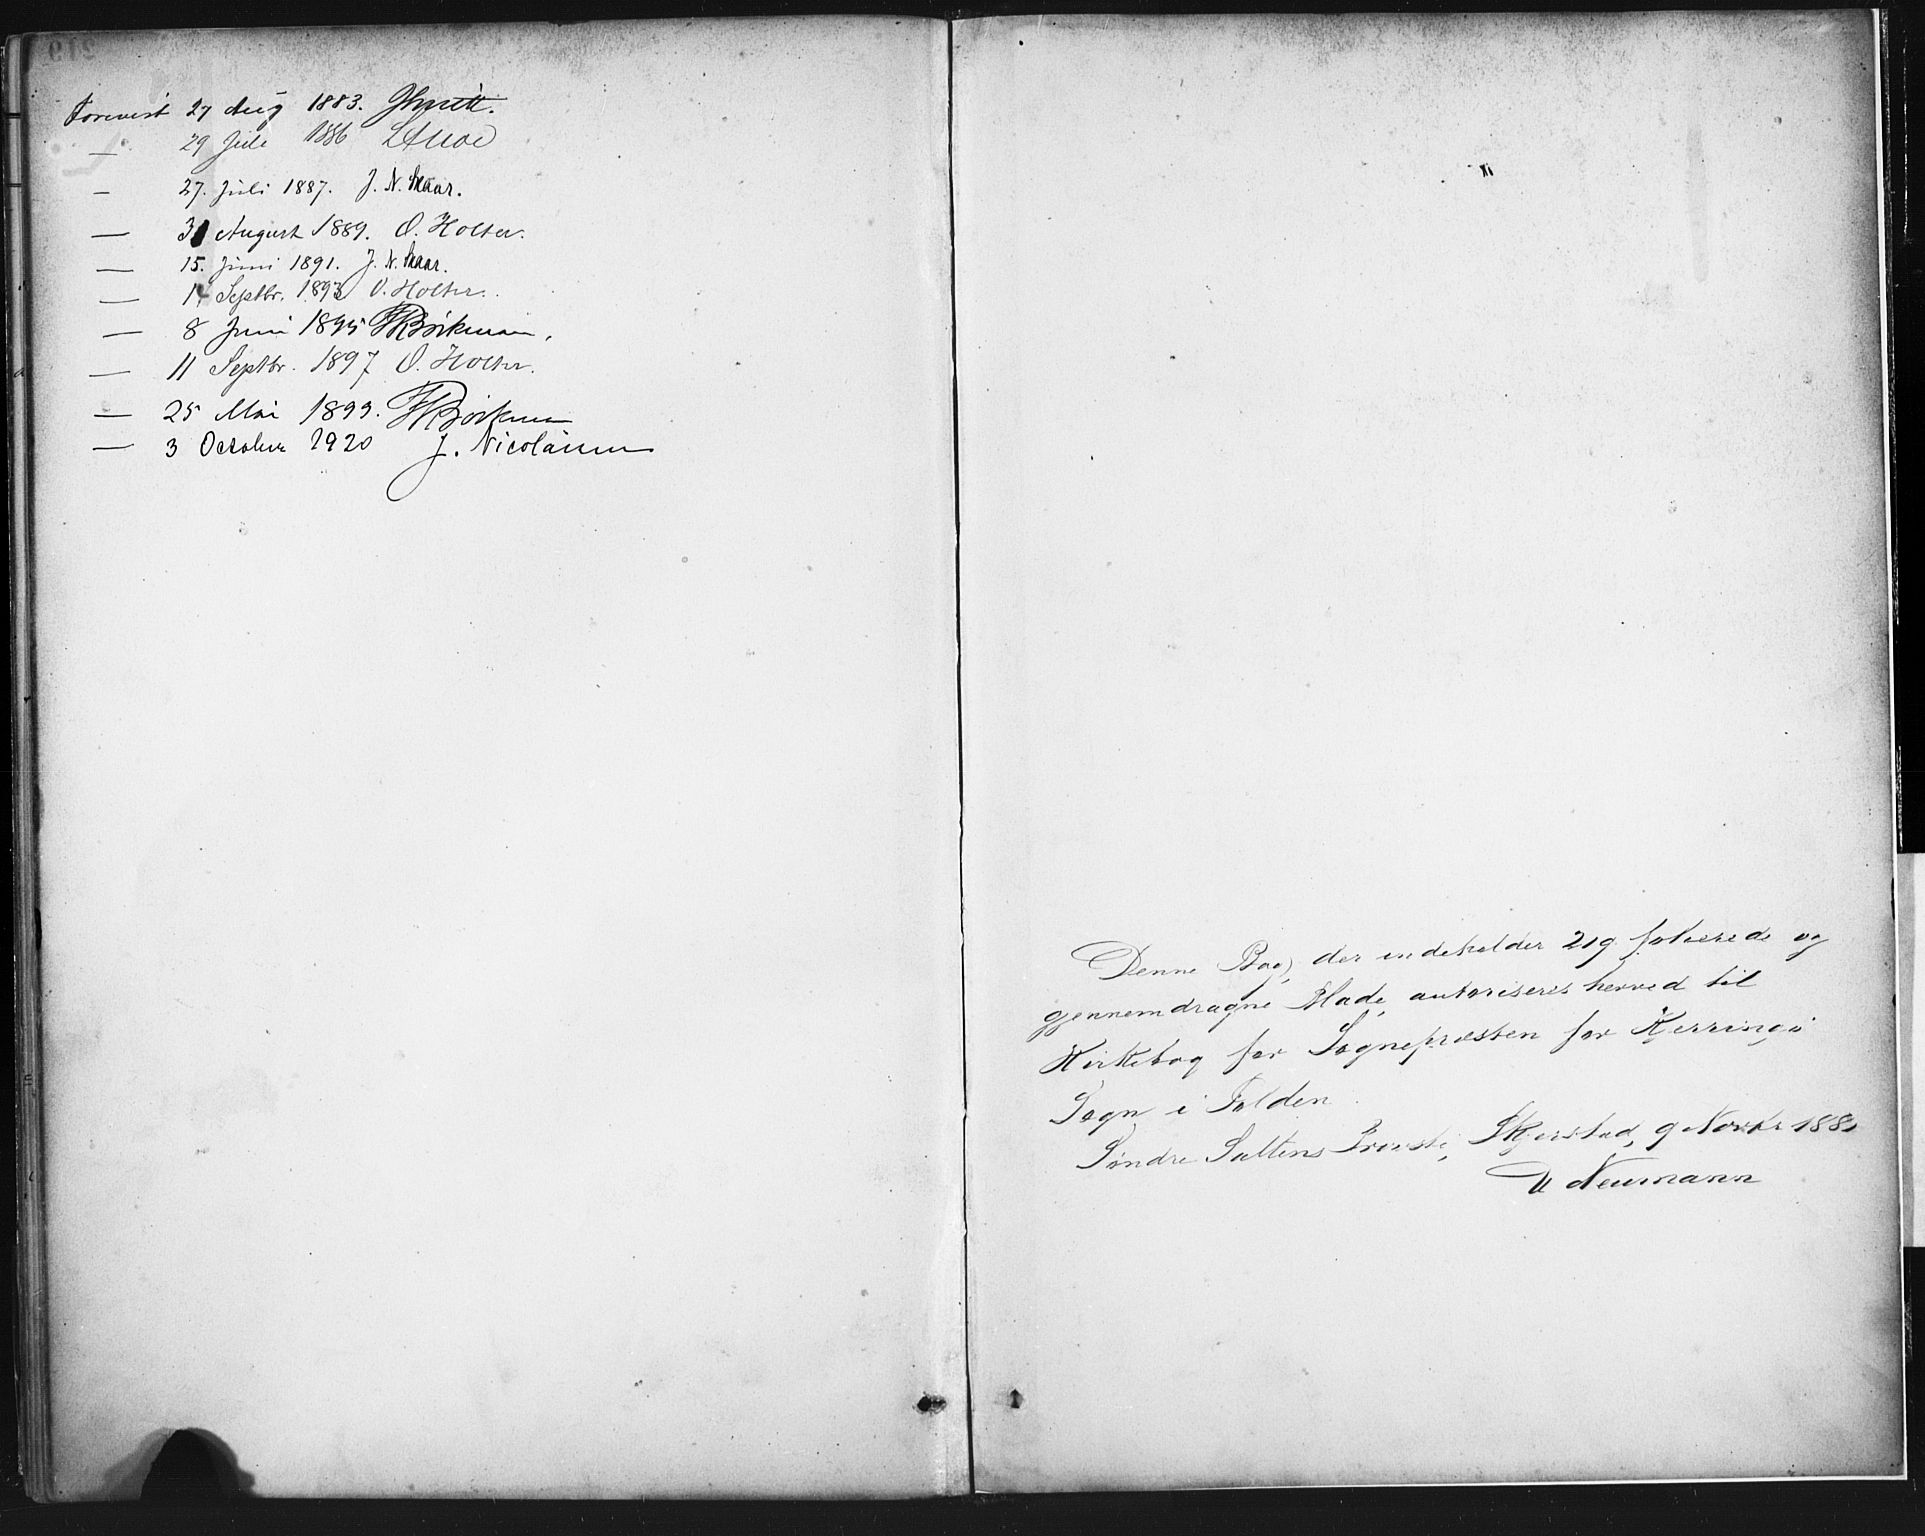 Forevist 27 Aug 1883.
— 29 Juli 1886
— 27. Juli 1887. J. N. Skaar.
— 31 August 1889. O. Holter.
— 15. Juni 1891. J. N. Skaar.
— 14 Septbr. 1893 O. Holter.
— 8 Juni 1895 Böckman.
— 11 Septbr. 1897 O. Holter.
— 25 Mai 1899. Böckman
— 3 October 1920 J. Nicolaisen
Denne Bog, der indeholder 219 folierede og
gjennemdragne Blade, autoriseres herved til
Kirkebog for Sognepræsten for Kjerringø
Sogn i Folden.
Søndre Saltens Provsti, Skjerstad, 9 Novbr 1881
Neumann